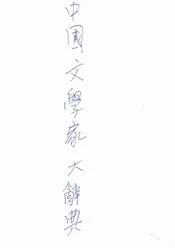 中國文學家大辭典